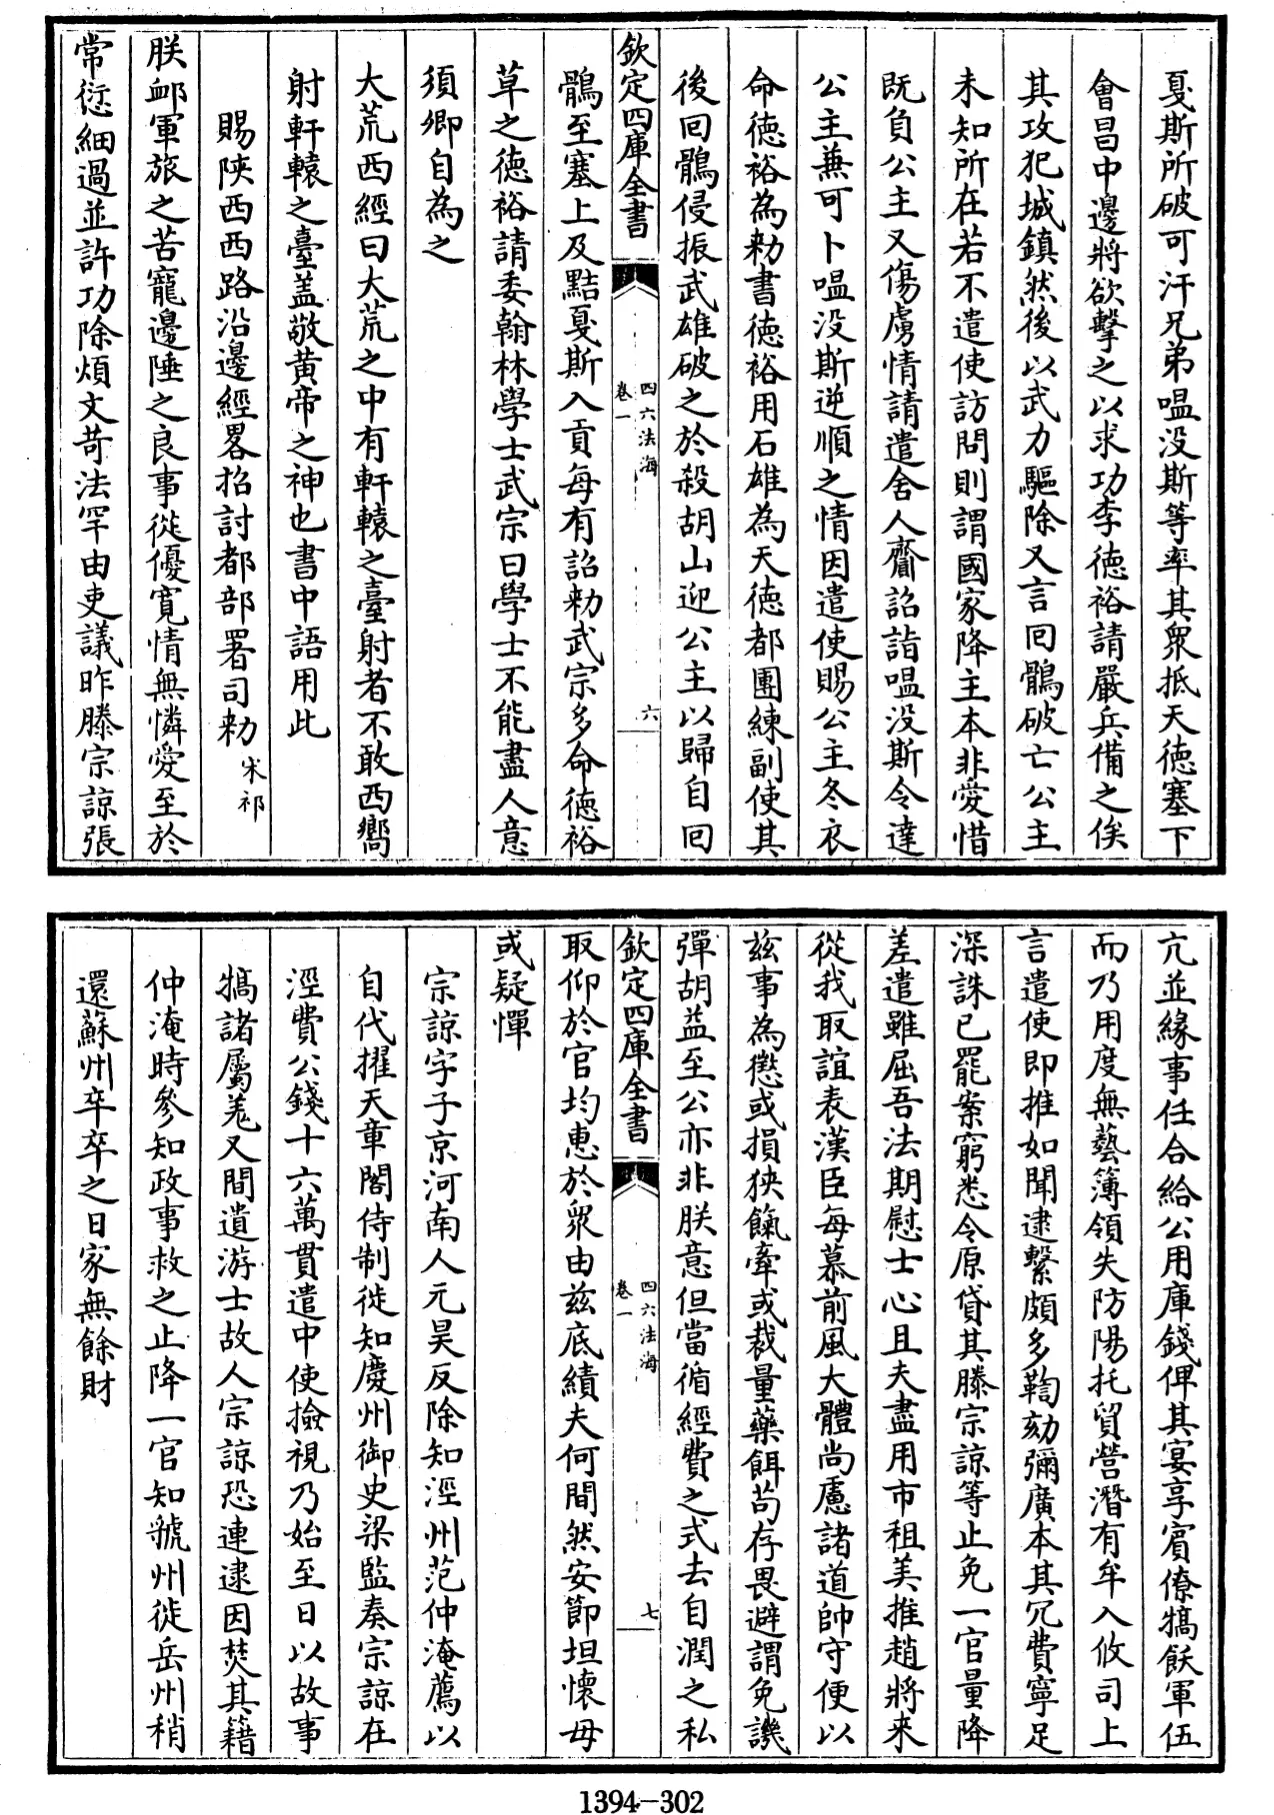 戛斯所破可汗兄弟嗢没斯等率其衆抵天德塞下
會昌中邊將欲擊之以求功李德裕請嚴兵備之俟
其攻犯城鎮然後以武力驅除又言回鶻破亡公主
未知所在若不遣使訪問則謂國家降主本非愛惜
既負公主又傷虜情請遣舍人齎詔詣嗢没斯令達
公主兼可卜嗢没斯逆順之情因遣使賜公主冬衣
命德裕為勅書德裕用石雄為天德都團練副使其
後回鶻侵振武雄破之於殺胡山迎公主以歸自回
欽定四庫全書
四六法海
卷一
六
鶻至塞上及黠戛斯入貢每有詔勅武宗多命德裕
草之德裕請委翰林學士武宗曰學士不能盡人意
須卿自為之
大荒西經曰大荒之中有軒轅之臺射者不敢西嚮
射軒轅之臺盖敬黃帝之神也書中語用此
賜陜西西路沿邊經畧招討都部署司勅 宋祁
朕䘏軍旅之苦寵邊陲之良事從優寛情無憐愛至於
常愆細過並許功除煩文苛法罕由吏議昨滕宗諒張
亢並緣事任合給公用庫錢俾其宴享賓僚犒飫軍伍
而乃用度無藝簿領失防陽托貿營潛有牟入攸司上
言遣使即推如聞逮繫頗多鞫劾彌廣本其冗費寧足
深誅已罷案窮悉令原貸其滕宗諒等止免一官量降
差遣雖屈吾法期慰士心且夫盡用市租美推趙將来
從我取誼表漢臣每慕前風大體尚慮諸道帥守便以
兹事為懲或損狹餼牽或裁量藥餌苟存畏避謂免譏
彈胡益至公亦非朕意但當循經費之式去自潤之私
欽定四庫全書
四六法海
卷一
七
取仰於官均惠於衆由兹底績夫何間然安節坦懷毋
或疑憚
宗諒字子京河南人元昊反除知涇州范仲淹薦以
自代擢天章閣侍制徙知慶州御史梁監奏宗諒在
涇費公錢十六萬貫遣中使撿視乃始至日以故事
犒諸屬羗又間遺游士故人宗諒恐連逮因焚其籍
仲淹時參知政事救之止降一官知虢州徙岳州稍
還蘇州卒卒之日家無餘財
1394—302